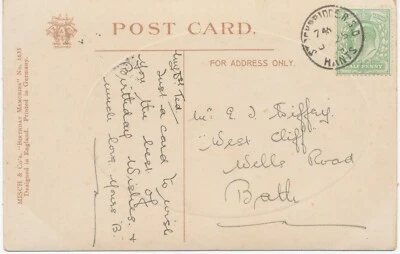 POST CARD.
FOR ADDRESS ONLY.
MISCH & Co.'s. "BIRTHDAY MEMORIES" No. 1455
Designed in England. Printed in Germany.
STOCKBRIDGE R.S.O
HANTS
Ted
Just a card to wish
you the best of
Birthday wishes. &
much love, yours B.
Mr E J Tiffey
West Cliff
Wells Road
Bath